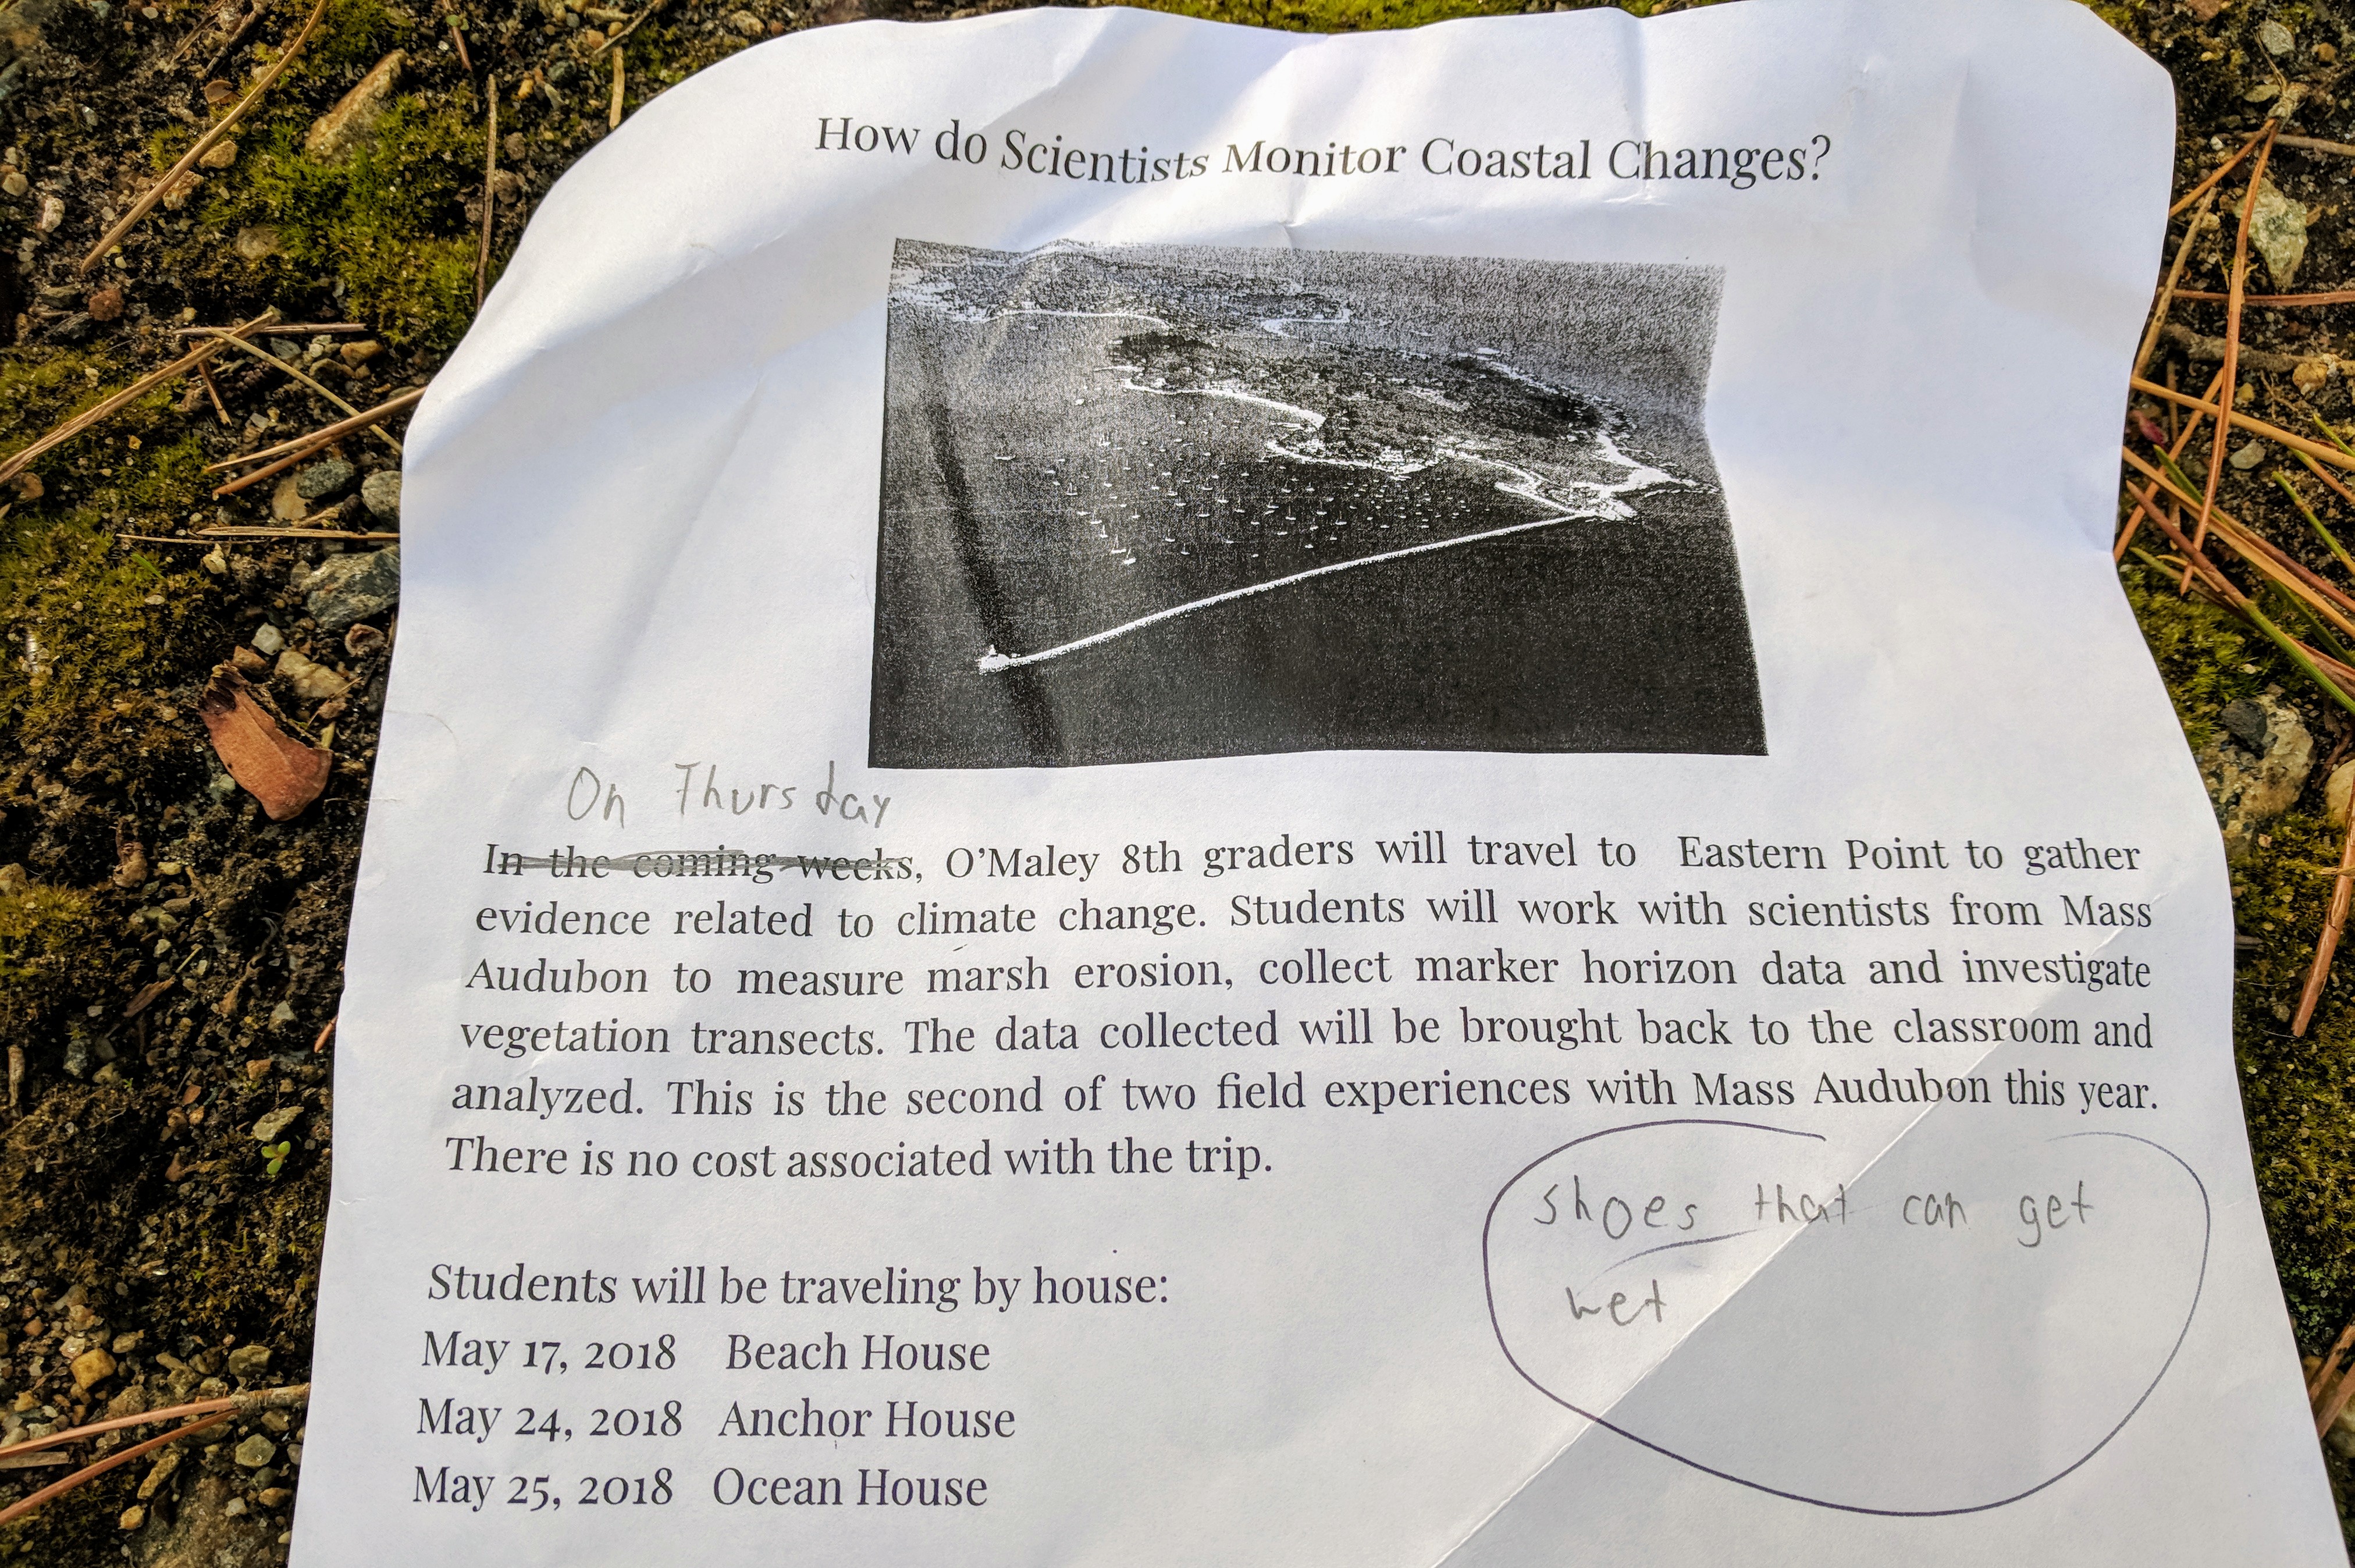 How do Scientists Monitor Coastal Changes?
On Thursday
In the coming weeks, O'Maley 8th graders will travel to Eastern Point to gather
evidence related to climate change. Students will work with scientists from Mass
Audubon to measure marsh erosion, collect marker horizon data and investigate
vegetation transects. The data collected will be brought back to the classroom and
analyzed. This is the second of two field experiences with Mass Audubon this year.
There is no cost associated with the trip.
shoes that can get
wet
Students will be traveling by house:
May 17, 2018 Beach House
May 24, 2018 Anchor House
May 25, 2018 Ocean House